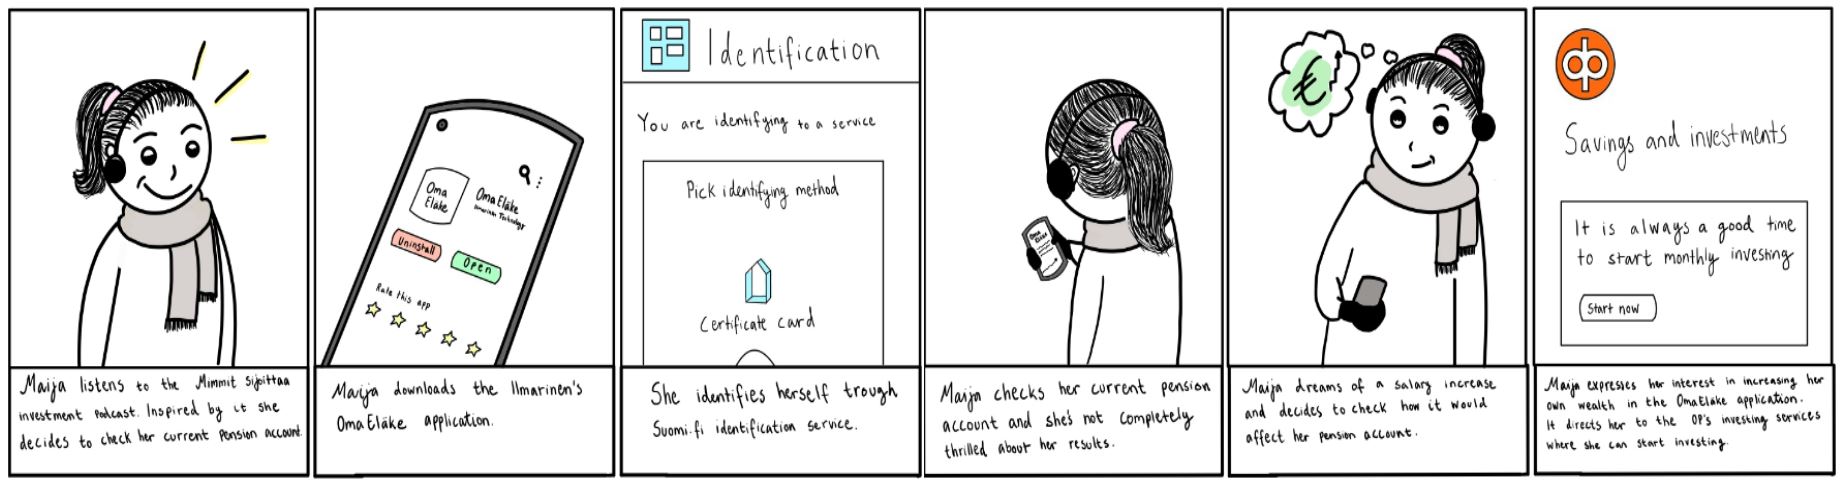 Maija listens to the Mimmit Sijoittaa
investment podcast. Inspired by it she
decides to check her current pension account.
Oma
Eläke
Oma Eläke
Ilmarinen Technology
Uninstall
Open
Rate this app
Maija downloads the Ilmarinen's
Oma Eläke application.
Identification
You are identifying to a service
Pick identifying method
Certificate card
She identifies herself trough
Suomi.fi identification service.
Oma
Eläke
Maija checks her current pension
account and she's not completely
thrilled about her results.
€
Maija dreams of a salary increase
and decides to check how it would
affect her pension account.
op
Savings and investments
It is always a good time
to start monthly investing
Start now
Maija expresses her interest in increasing her
own wealth in the OmaEläke application.
It directs her to the OP's investing services
where she can start investing.